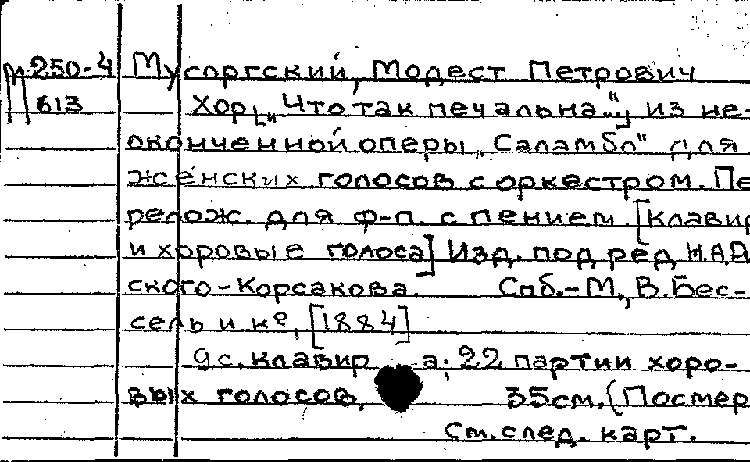 М 250-4 Мусоргский, Модест Петрович
613 Хор [„Что так печальна.."] из не-
оконченной оперы „Саламбо" для
женских голосов с оркестром. Пе
релож. для ф-п. с пением. [клавир
и хоровые голоса] Изд. под ред Н.А.Р
ского-Корсакова. Спб.-М., В. Бес-
сель и кº, [1884]
9с. клавир а; 22 партии хоро-
вых голосов, 35см. (Посмер
См. след. карт.